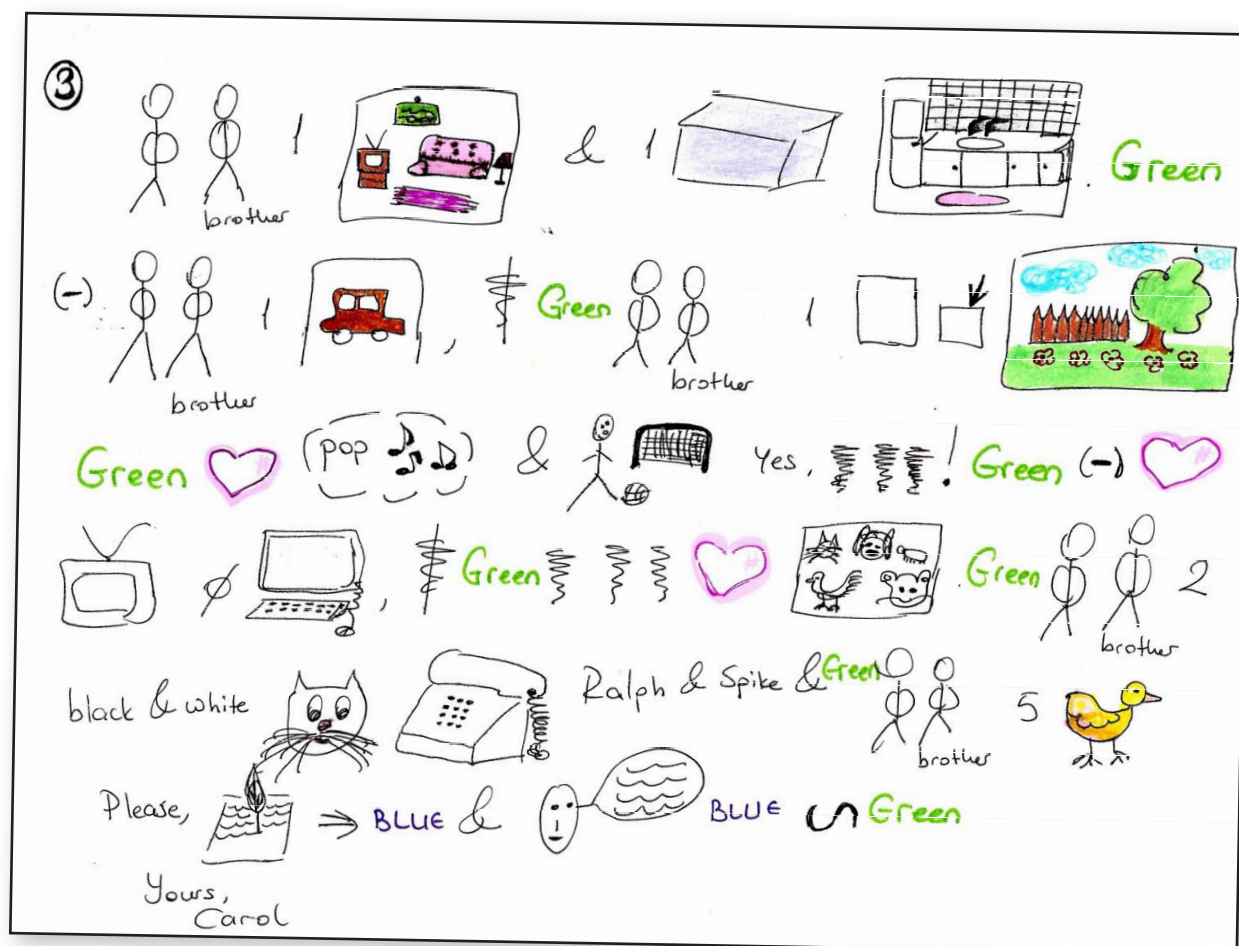 3
1 & 1 . Green
brother
(-) 1 , Green 1
brother brother
Green pop & Yes, ! Green (-)
, Green . Green 2
brother
black & white Ralph & Spike & Green 5
brother
Please, ⇒ BLUE & BLUE Green
Yours,
Carol